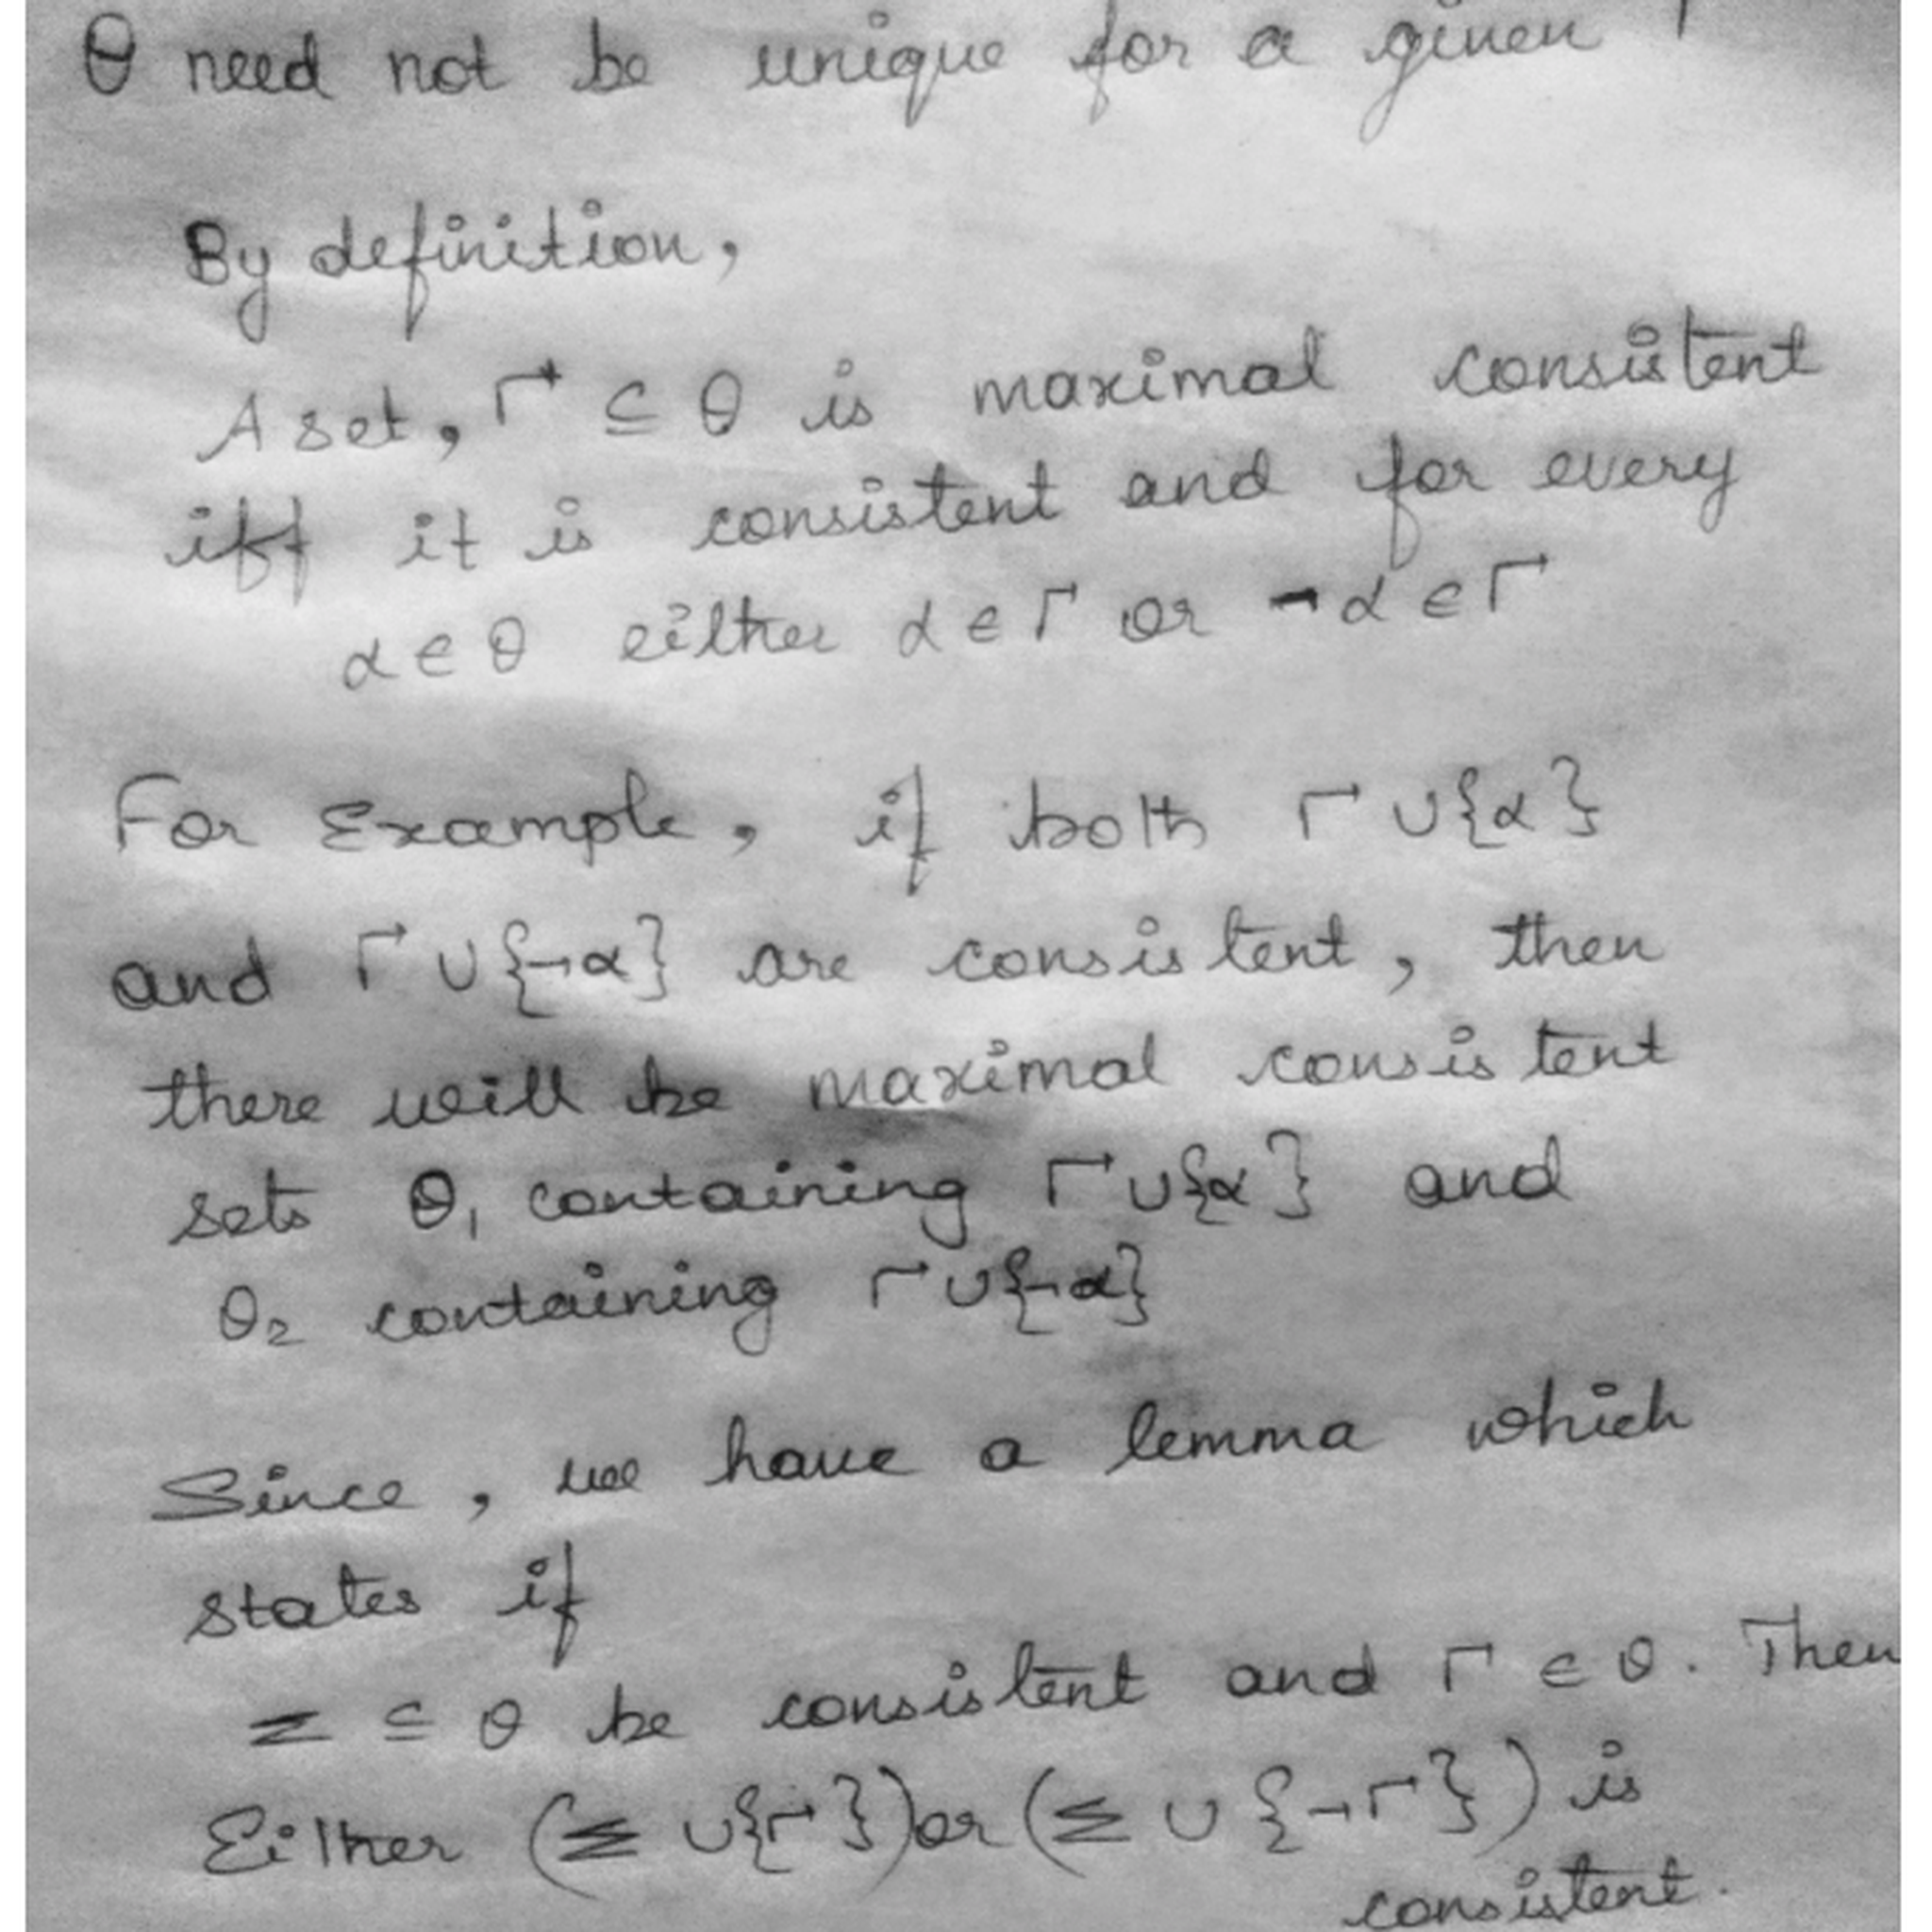 Θ need not be unique for a given
By definition,
A set, Γ ⊆ Θ is maximal consistent
iff it is consistent and for every
α ∈ Θ either α ∈ Γ or ¬α ∈ Γ
For Example, if both Γ ∪ {α}
and Γ ∪ {¬α} are consistent, then
there will be maximal consistent
sets Θ₁ containing Γ ∪ {α} and
Θ₂ containing Γ ∪ {¬α}
Since, we have a lemma which
states if
Σ ⊆ Θ be consistent and Γ ∈ Θ. Then
Either (Σ ∪ {Γ}) or (Σ ∪ {¬Γ}) is
consistent.